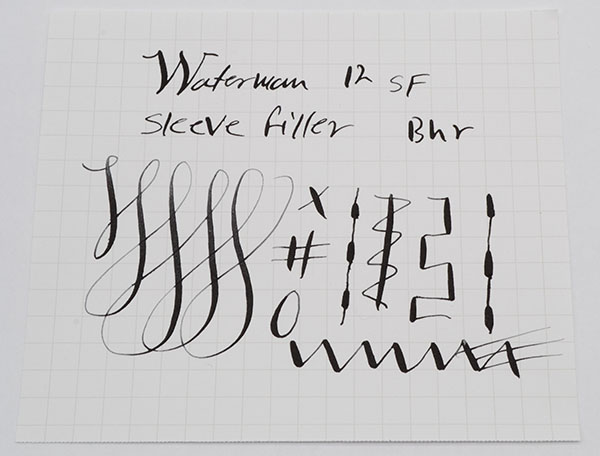 Waterman 12 SF
Sleeve filler Bhr
X
#
O